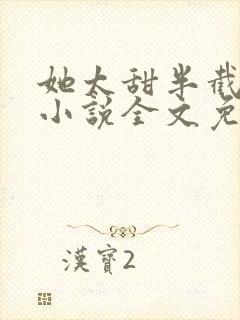 她太甜半截
小說全文免
漢寶2